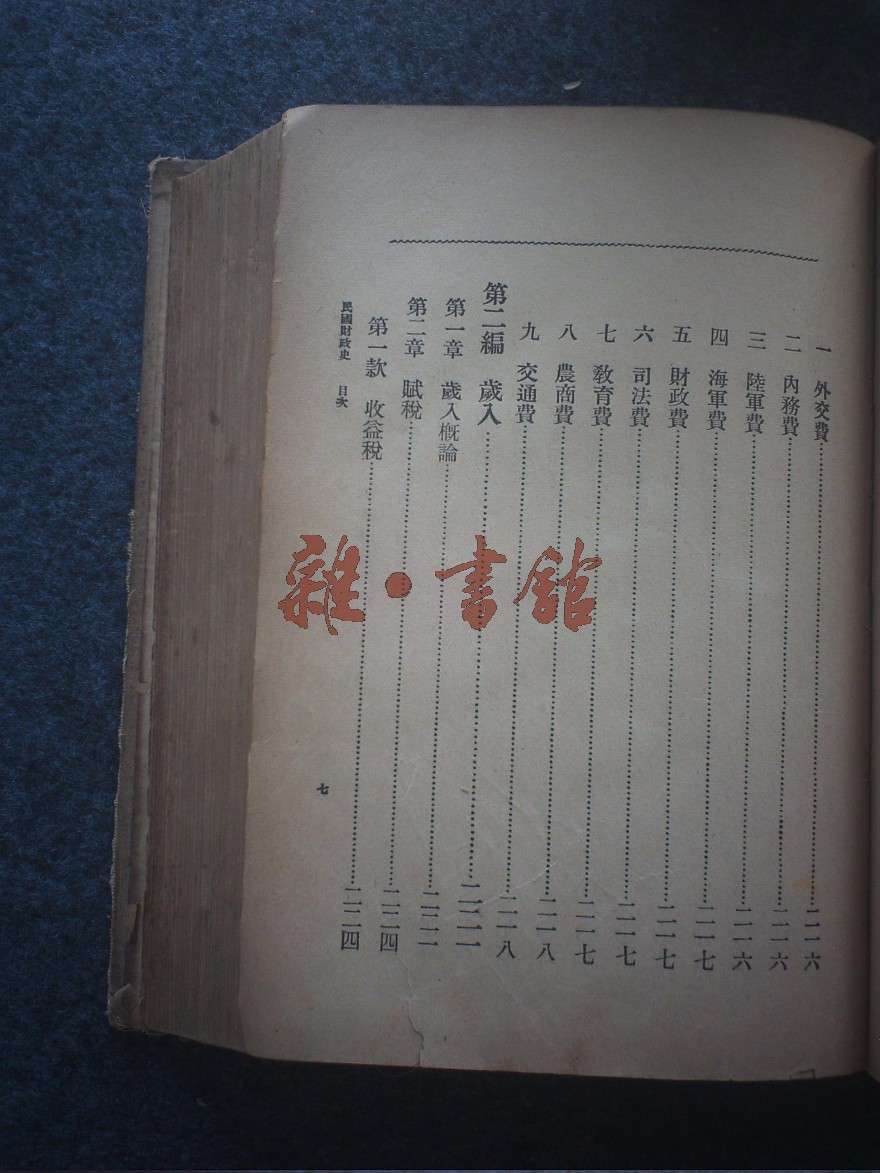 一 外交費……二一六
二 內務費……二一六
三 陸軍費……二一六
四 海軍費……二一七
五 財政費……二一七
六 司法費……二一七
七 敎育費……二一七
八 農商費……二一八
九 交通費……二一八
第二編 歲入……二二一
第一章 歲入槪論……二二一
第二章 賦稅……二二四
第一款 收益稅……二二四
民國財政史 目次
七
雜·書館